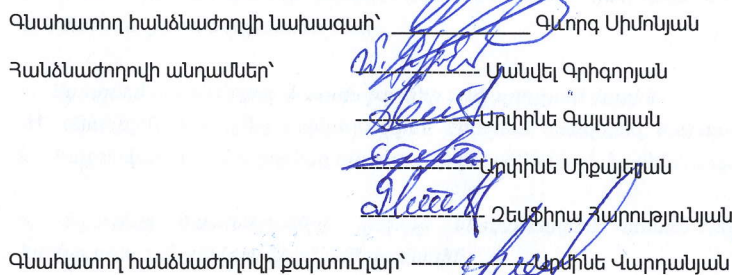 Գնահատող հանձնաժողովի նախագահ՝ ____________ Գևորգ Սիմոնյան
Հանձնաժողովի անդամներ՝ ---------------- Մանվել Գրիգորյան
---------------- Արփինե Գալստյան
---------------- Արփինե Միքայելյան
---------------- Զեմֆիրա Հարությունյան
Գնահատող հանձնաժողովի քարտուղար՝ ---------------- Արմինե Վարդանյան